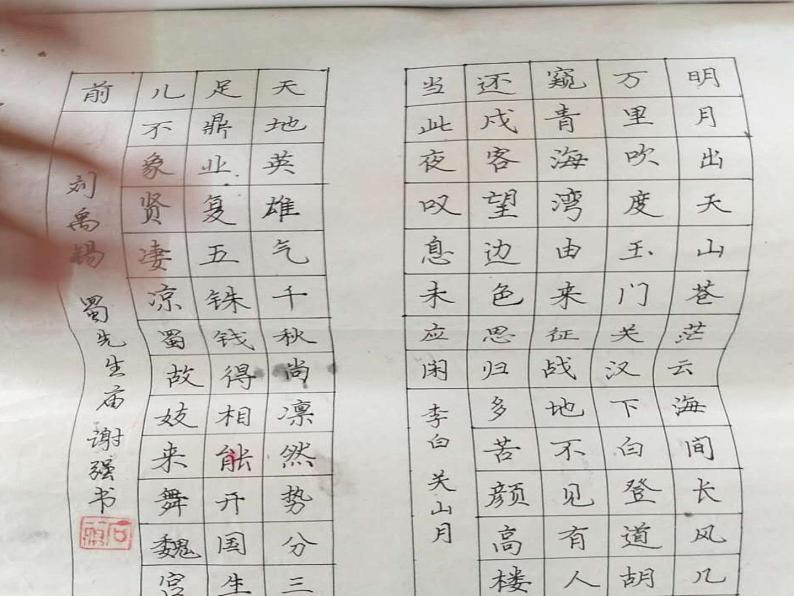 明月出天山苍茫云海间长风几
万里吹度玉门关汉下白登道胡
窥青海湾由来征战地不见有人
还戍客望边色思归多苦颜高楼
当此夜叹息未应闲
李白 关山月
天地英雄气千秋尚凛然势分三
足鼎业复五铢钱得相能开国生
儿不象贤凄凉蜀故妓来舞魏宫
前
刘禹锡 蜀先生庙 谢强书